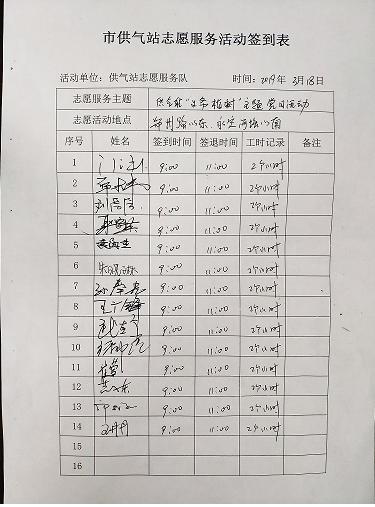 市供气站志愿服务活动签到表
活动单位：供气站志愿服务队 时间：2019年 3月18日
志愿服务主题 供气站"义务植树"主题党日活动
志愿活动地点
序号 姓名 签到时间 签退时间 工时记录 备注
1 9:00 11:00 2个小时
2 9:00 11:00 2个小时
3 9:00 11:00 2个小时
4 9:00 11:00 2个小时
5 9:00 11:00 2个小时
6 9:00 11:00 2个小时
7 9:00 11:00 2个小时
8 9:00 11:00 2个小时
9 9:00 11:00 2个小时
10 9:00 11:00 2个小时
11 9:00 11:00 2个小时
12 9:00 11:00 2个小时
13 9:00 11:00 2个小时
14 9:00 11:00 2个小时
15
16